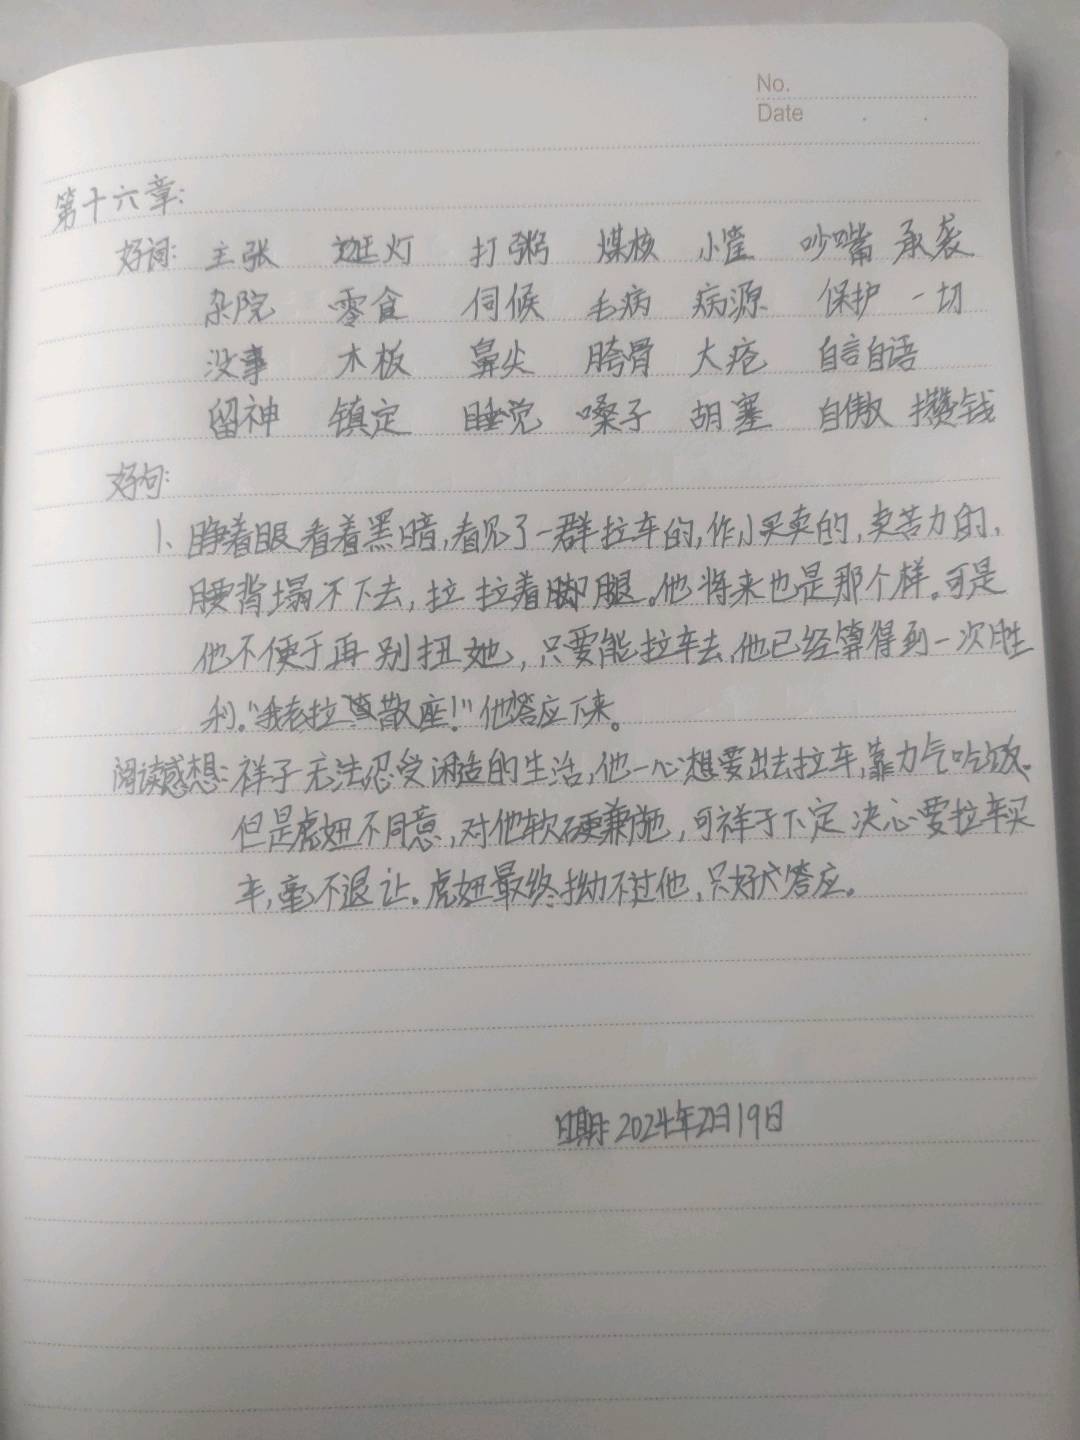 No.
Date
第十六章:
好词: 主张 逛灯 打粥 煤核 小筐 吵嘴 承袭
杂院 零食 伺候 毛病 病源 保护 一切
没事 木板 鼻尖 胯骨 大疮 自言自语
留神 镇定 睡觉 嗓子 胡塞 自傲 攒钱
好句:
1、睁着眼看着黑暗,看见了一群拉车的,作小买卖的,卖苦力的,
腰背塌不下去,拉拉着脚腿。他将来也是那个样。可是
他不便于再别扭她,只要能拉车去,他已经算得到一次胜
利。"我老拉散座!"他答应下来。
阅读感想:祥子无法忍受闲适的生活,他一心想要出去拉车,靠力气吃饭。
但是虎妞不同意,对他软硬兼施,可祥子下定决心要拉车买
车,毫不退让。虎妞最终拗不过他,只好答应。
日期: 2024年2月19日